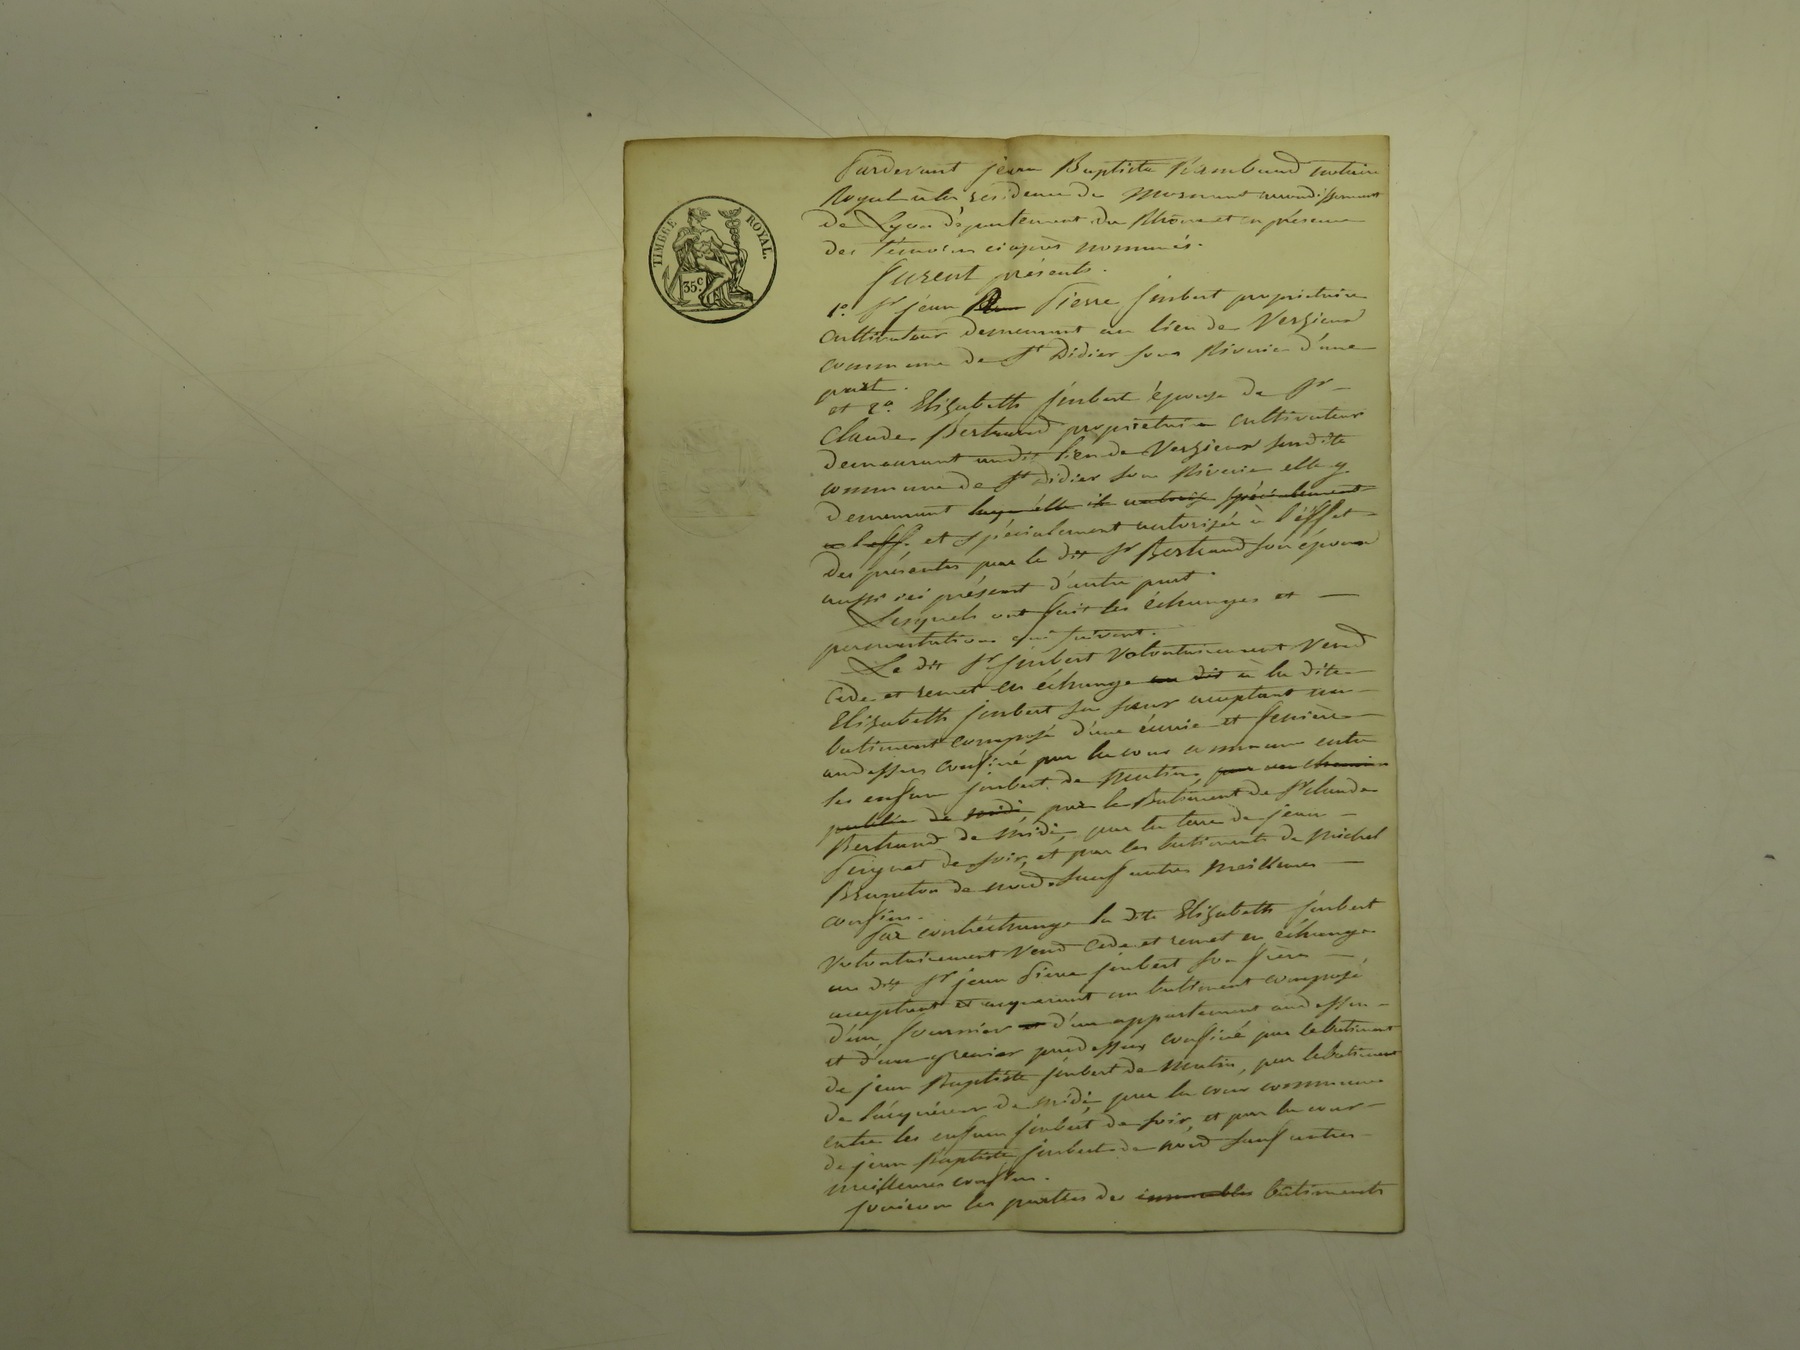 TIMBRE ROYAL.
35 c.
Pardevant jean Baptiste Rambaud notaire
Royal à la résidence de Mornant arrondissement
de Lyon département du Rhône et en présence
des témoins ciaprès nommés.
furent présents.
1.° Sr jean Pierre Jinbert propriétaire
cultivateur demeurant au lieu de Verzieux
commune de St Didier sous Riverie d'une
part.
et 2.° Elizabeth Jinbert épouse de Sr
Claude Bertrand propriétaire cultivateur
demeurant audit lieu de Verzieux susdite
commune de St Didier sous Riverie elle y
demeurant laquelle il autorise spécialement
a l'eff. et spécialement autorisée à l'éffet
des présentes par le dit Sr Bertrand son époux
aussi ici présent d'autre part.
Lesquels ont fait les échanges et
permutations qui suivent.
Le dit Sr Jinbert volontairement vend
cede et remet en échange au dit à la dite
Elizabeth Jinbert sa sœur acceptant un
batiment composé d'une écurie et fenière
audessus confiné par la cour commune entre
les enfans Jinbert de matin, par un chemin
public de midi, par le Batiment de Sr Claude
Bertrand de midi, par la terre de jean
de soir, et par les batiments de Michel
de nord sauf autres meilleures
confins.
Par contréchange la dite Elizabeth Jinbert
volontairement vend cede et remet en échange
au dit Sr jean Pierre Jinbert son frère
acceptant et acquerant un batiment composé
d'un fournier et d'un appartement audessus
et d'un grenier pardessus confiné par le batiment
de jean Baptiste Jinbert de matin, par le batiment
de l'acquéreur de midi par la cour commune
entre les enfans Jinbert de soir, et par la cour
de jean Baptiste Jinbert de nord sauf autres
meilleures confins.
Jouiront les parties des immeubles bâtiments